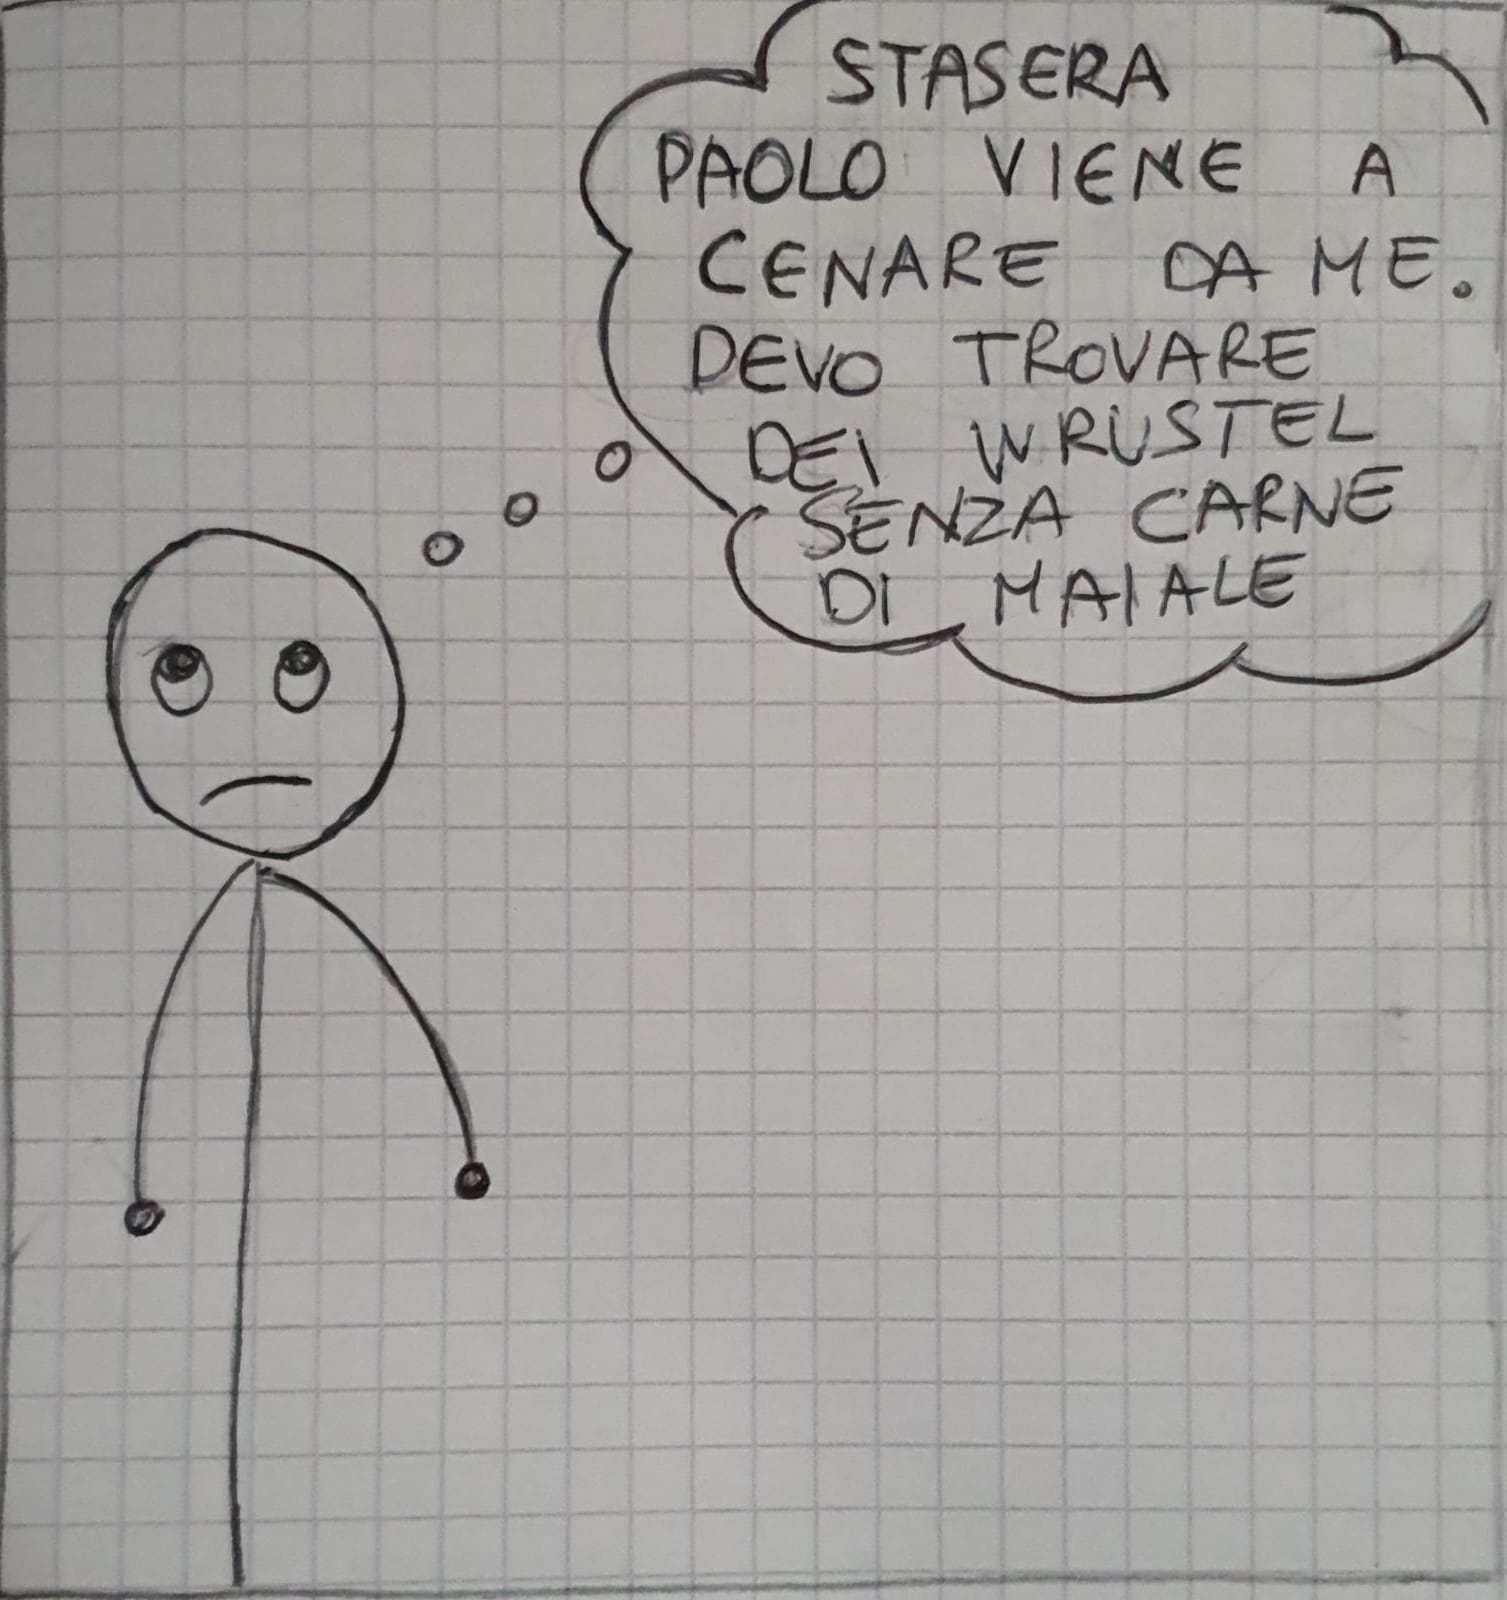 STASERA
PAOLO VIENE A
CENARE DA ME.
DEVO TROVARE
DEI WRUSTEL
SENZA CARNE
DI MAIALE